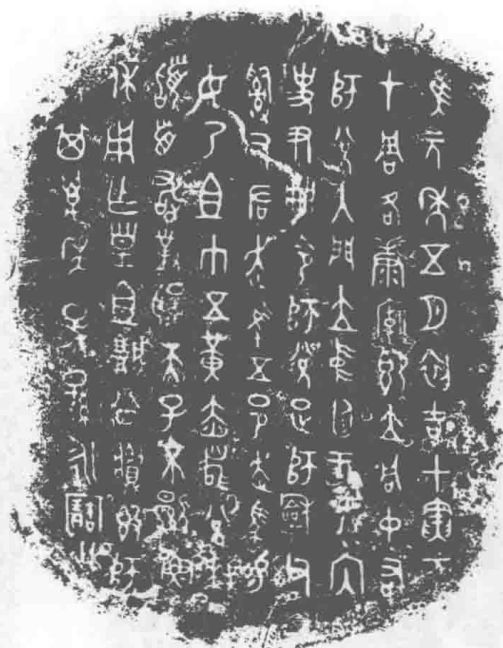 隹元年五月初吉甲寅王
才周各康廟即立同中右
師兌入門立中廷王乎內
史尹冊令師兌疋師龢父
𤔲左右走馬五邑走馬易
女乃且巾五黃赤舄兌拜
𩒨首敢對揚天子不顯魯
休用乍皇且城公簋師
兌其萬年子子孫孫永寶用